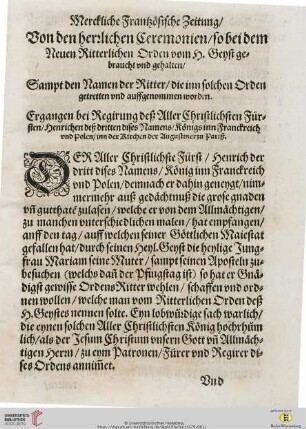 Merckliche Frantzösische Zeitung/
Von den herzlichen Ceremonien/ so bei dem
Neuen Ritterlichen Orden vom H. Geyst ge-
braucht vnd gehalten/
Sampt den Namen der Ritter/ die inn solchen Orden
getretten vnd auffgenommen worden.
Ergangen bei Regirung deß Aller Christlichsten Für-
sten/ Henrichen deß dritten dises Namens/ Königs inn Franckreich
vnd Polen/ inn der Kirchen der Augustiner zu Pariß.
DER Aller Christlichste Fürst/ Henrich der
dritt dises Namens/ König inn Franckreich
vnd Polen/ demnach er dahin geneygt/ nim-
mermehr auß gedächtnuß die grose gnaden
vñ gutthatē zulasen/ welche er von dem Allmächtigen/
zu manchen vnterschiedlichen malen/ hat empfangen/
auff den tag/ auff welchen seiner Göttlichen Maiestat
gefallen hat/ durch seinen Heyl. Geyst die heylige Jung-
fraw Mariam seine Muter/ sampt seinen Aposteln zu-
besuchen (welchs dañ der Pfingstag ist) so hat er Gnä-
digst gewisse Ordens Ritter wehlen/ schaffen vnd ord-
nen wollen/ welche man vom Ritterlichen Orden deß
H. Geystes nennen solte. Eyn lobwürdige sach warlich/
die eynen solchen Aller Christlichsten König hochrhüm-
lich/ als der Jesum Christum vnsern Gott vñ Allmäch-
tigen Herrn/ zu eym Patronen/ Fürer vnd Regirer di-
ses Ordens annimet.
Vnd
UNIVERSITÄTS-
BIBLIOTHEK
HEIDELBERG
© Universitätsbibliothek Heidelberg
Baden-Württemberg